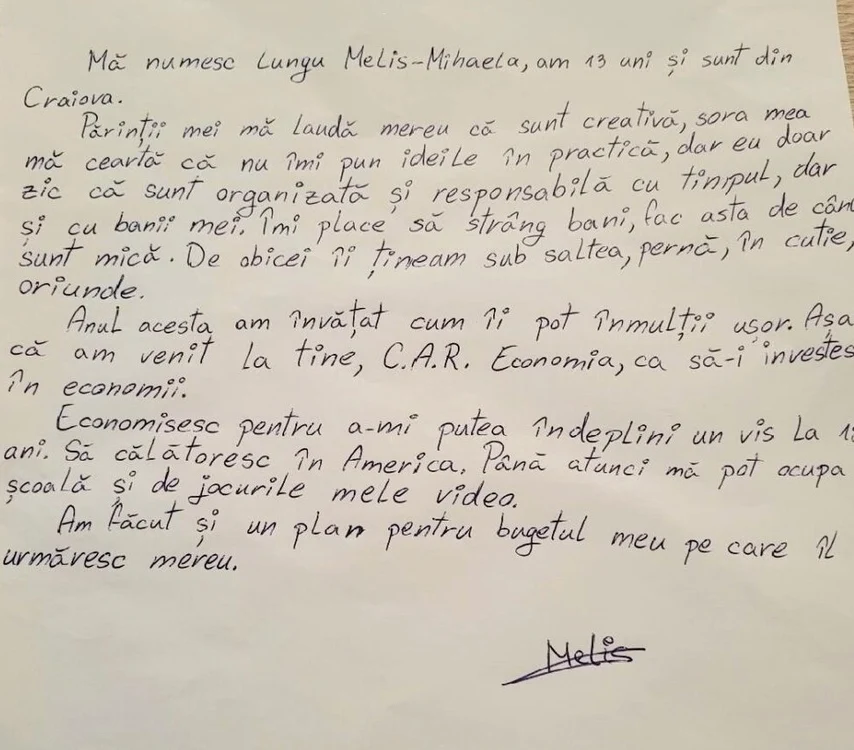 Mă numesc Lungu Melis-Mihaela, am 13 ani și sunt din
Craiova.
Părinții mei mă laudă mereu că sunt creativă, sora mea
mă ceartă că nu îmi pun ideile în practică, dar eu doar
zic că sunt organizată și responsabilă cu timpul, dar
și cu banii mei. Îmi place să strâng bani, fac asta de când
sunt mică. De obicei îi țineam sub saltea, pernă, în cutie,
oriunde.
Anul acesta am învățat cum îi pot înmulții ușor. Așa
că am venit la tine, C.A.R. Economia, ca să-i investes
în economii.
Economisesc pentru a-mi putea îndeplini un vis la
ani. Să călătoresc în America. Până atunci mă pot ocupa
școală și de jocurile mele video.
Am făcut și un plan pentru bugetul meu pe care îl
urmăresc mereu.
Melis